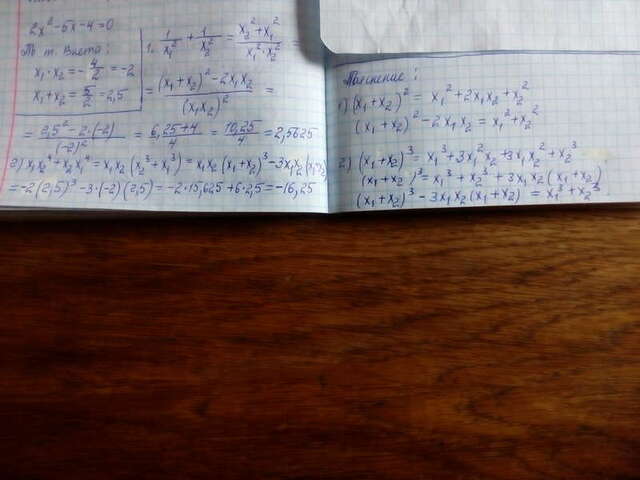 2x² - 5x - 4 = 0
По т. Виета:
x₁ · x₂ = - 4/2 = -2
x₁ + x₂ = 5/2 = 2,5
1. 1/x₁² + 1/x₂² = (x₂² + x₁²)/(x₁² · x₂²)
= ((x₁ + x₂)² - 2x₁x₂)/(x₁x₂)² =
= (2,5² - 2·(-2))/(-2)² = (6,25 + 4)/4 = 10,25/4 = 2,5625
2) x₁x₂⁴ + x₂x₁⁴ = x₁x₂(x₂³ + x₁³) = x₁x₂(x₁ + x₂)³ - 3x₁x₂(x₁+x₂)
= -2(2,5)³ - 3·(-2)(2,5) = -2·15,625 + 6·2,5 = -16,25
Пояснение:
1) (x₁ + x₂)² = x₁² + 2x₁x₂ + x₂²
(x₁ + x₂)² - 2x₁x₂ = x₁² + x₂²
2) (x₁ + x₂)³ = x₁³ + 3x₁²x₂ + 3x₁x₂² + x₂³
(x₁ + x₂)³ = x₁³ + x₂³ + 3x₁x₂(x₁ + x₂)
(x₁ + x₂)³ - 3x₁x₂(x₁ + x₂) = x₁³ + x₂³